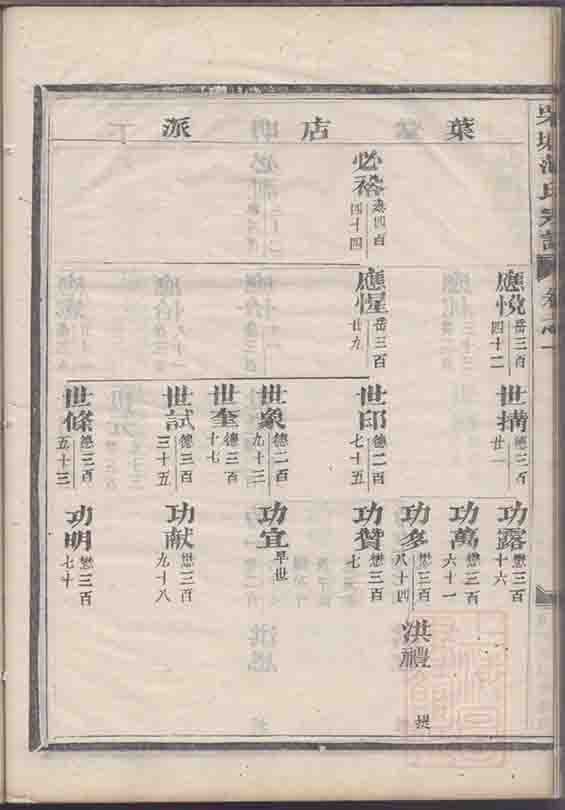 葉店派
必裕 四百四十四
應悅 岳三百四十二
應惺 岳三百廿九
世搆 德三百廿一
世印 德二百七十五
世象 德二百九十三
世奎 德三百十七
世試 德三百三十五
世條 德三百五十三
功露 懋三百十六
功萬 懋三百六十一
功多 懋三百八十四
功贊 懋三百七
功宜 早世
功献 懋三百九十八
功明 懋三百七十
洪禮 提